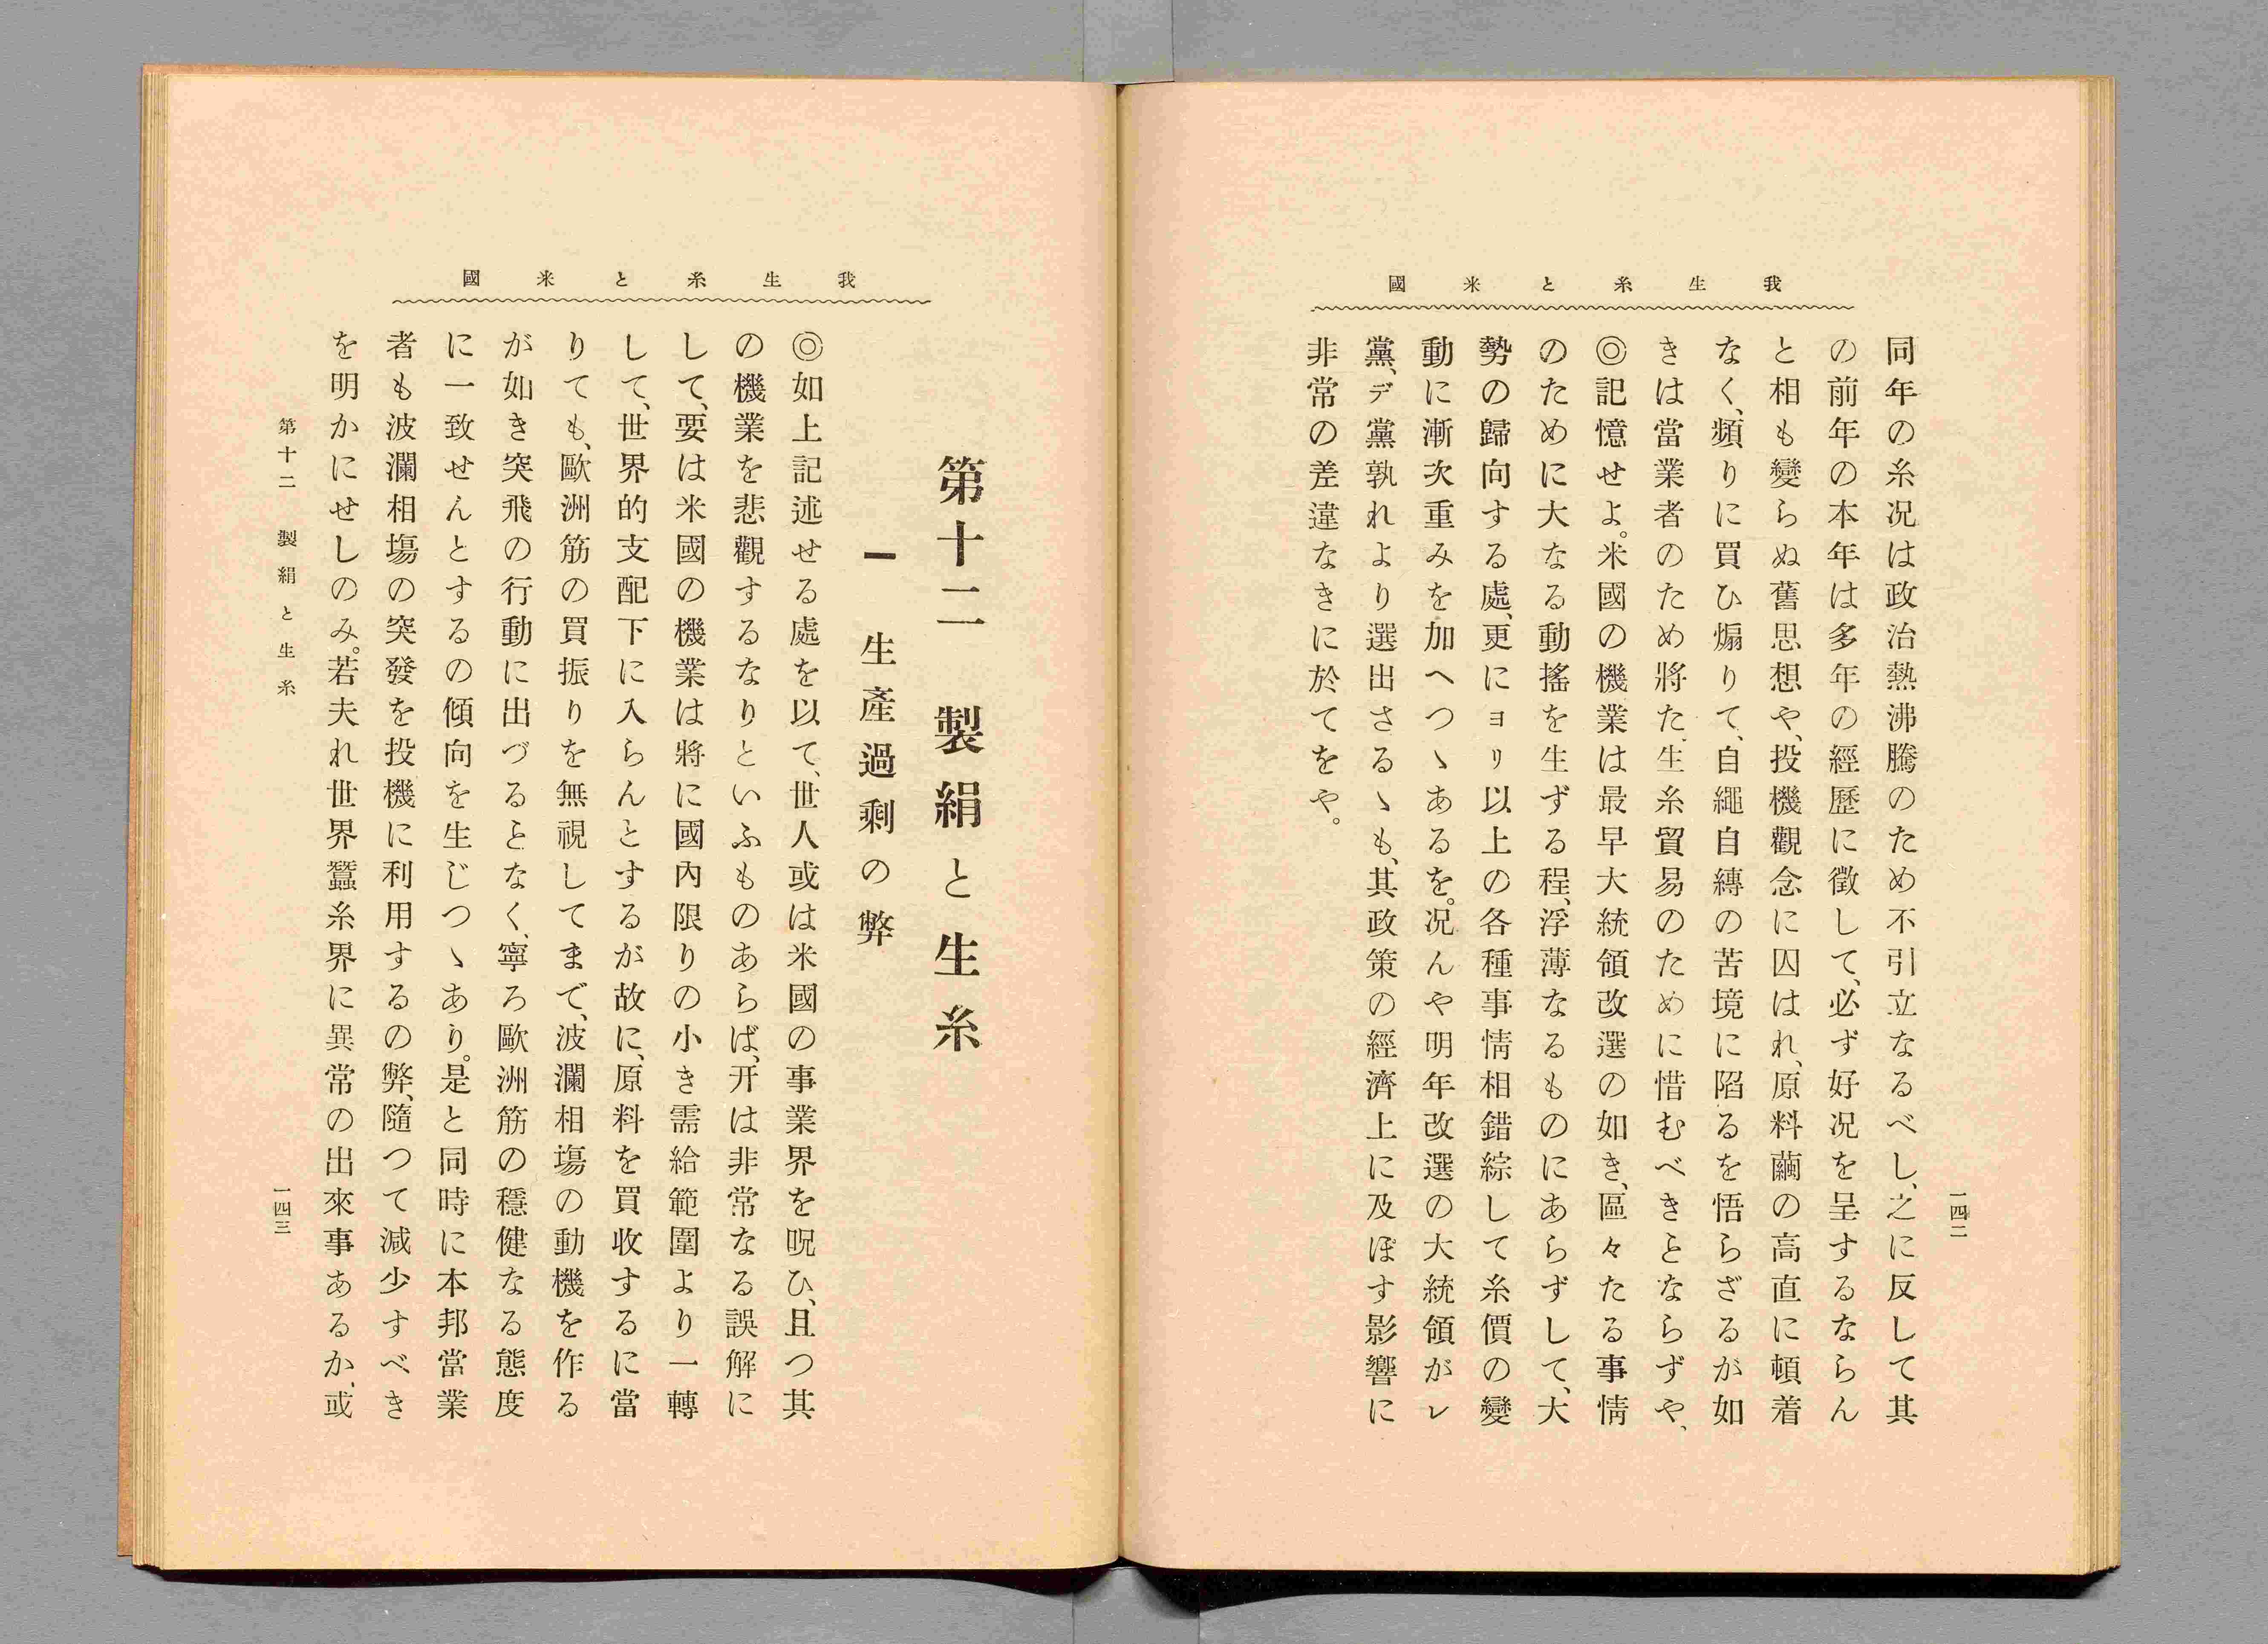 我生糸と米國
一四二
同年の糸況は政治熱沸騰のため不引立なるべし、之に反して其
の前年の本年は多年の經歷に徵して、必ず好況を呈するならん
と相も變らぬ舊思想や、投機觀念に囚はれ、原料繭の高直に頓着
なく、頻りに買ひ煽りて、自繩自縛の苦境に陷るを悟らざるが如
きは當業者のため將た、生糸貿易のために惜むべきとならずや、
◎記憶せよ。米國の機業は最早大統領改選の如き、區々たる事情
のために大なる動搖を生ずる程、浮薄なるものにあらずして、大
勢の歸向する處、更にヨリ以上の各種事情相錯綜して糸價の變
動に漸次重みを加へつゝあるを。況んや明年改選の大統領がレ
黨、デ黨孰れより選出さるゝも、其政策の經濟上に及ぼす影響に
非常の差違なきに於てをや。
我生糸と米國
第十二 製絹と生糸
一 生產過剩の弊
◎如上記述せる處を以て、世人或は米國の事業界を呪ひ、且つ其
の機業を悲觀するなりといふものあらば、开は非常なる誤解に
して、要は米國の機業は將に國內限りの小き需給範圍より一轉
して、世界的支配下に入らんとするが故に、原料を買收するに當
りても、歐洲筋の買振りを無視してまで、波瀾相塲の動機を作る
が如き突飛の行動に出づるとなく、寧ろ歐洲筋の穩健なる態度
に一致せんとするの傾向を生じつゝあり。是と同時に本邦當業
者も波瀾相塲の突發を投機に利用するの弊、隨つて減少すべき
を明かにせしのみ。若夫れ世界蠶糸界に異常の出來事あるか、或
第十二 製絹と生糸
一四三